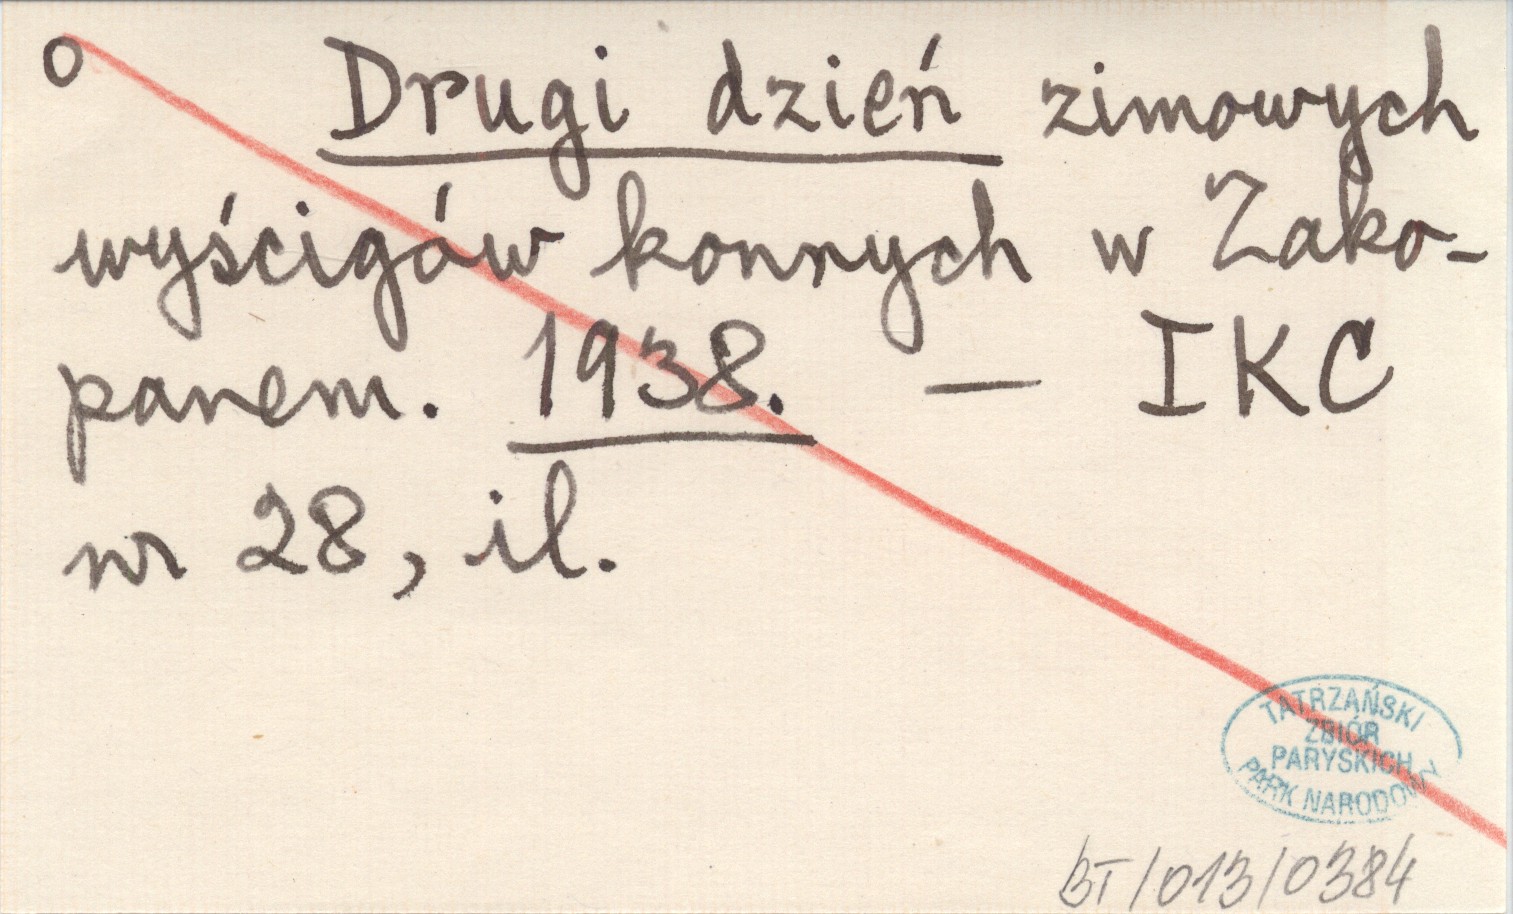 o Drugi dzień zimowych
wyścigów konnych w Zako-
panem. 1938. — IKC
nr 28, il.
TATRZAŃSKI
ZBIÓR
PARYSKICH
PARK NARODOWY
BT/013/0384